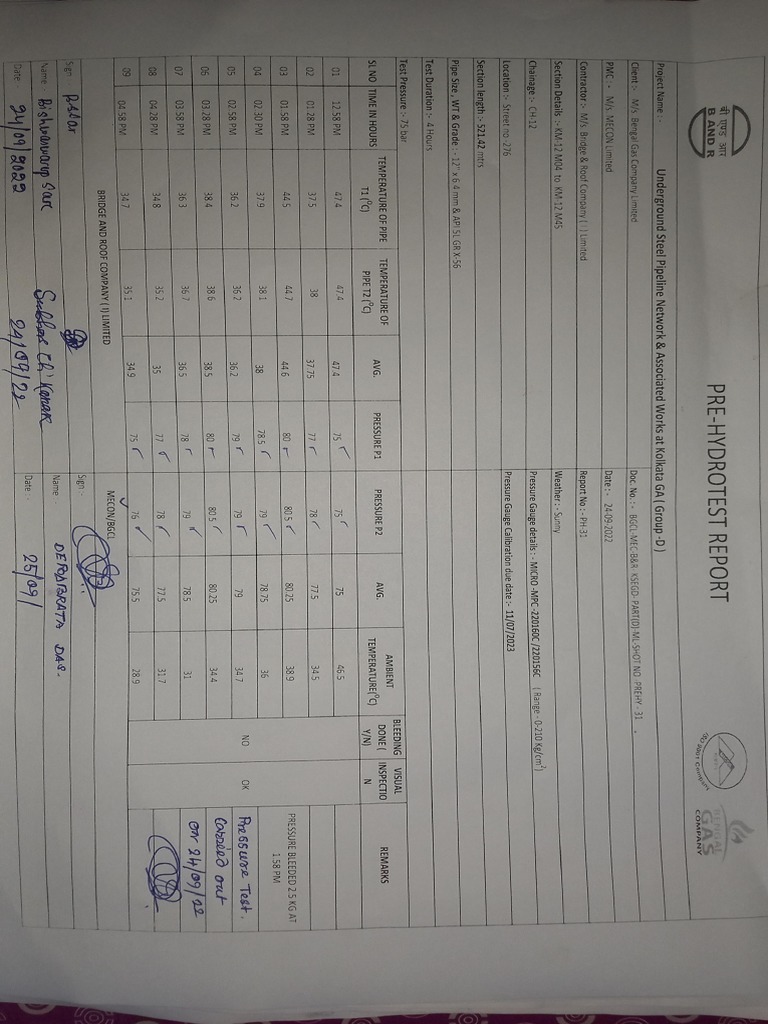 बी एण्ड आर
B AND R
PRE-HYDROTEST REPORT
BENGAL
GAS
COMPANY
Project Name :- Underground Steel Pipeline Network & Associated Works at Kolkata GA ( Group -D )
Client :- M/s. Bengal Gas Company Limited Doc. No. :- BGCL-MEC-B&R- KSEGD- PART(D)-ML-SHOT NO. PREHY - 31
PMC : - M/s. MECON Limited Date : - 24-09-2022
Contractor :- M/s. Bridge & Roof Company ( I ) Limited Report No : - PH-31
Section Details :- KM-12 M04 to KM-12 M45 Weather : - Sunny
Chainage :- CH-12 Pressure Gauge details : - MICRO -MPC -220160C /220156C ( Range - 0-210 Kg/cm²)
Location :- Street no -276 Pressure Gauge Calibration due date :- 11/07/2023
Section length :- 521.42 mtrs
Pipe Size , WT & Grade : - 12" x 6.4 mm & API 5L GR X-56
Test Duration :- 4 Hours
Test Pressure :- 75 bar
SL NO TIME IN HOURS TEMPERATURE OF PIPE T1 (°C) TEMPERATURE OF PIPE T2 (°C) AVG. PRESSURE P1 PRESSURE P2 AVG. AMBIENT TEMPERATURE(°C) BLEEDING DONE ( Y/N) VISUAL INSPECTION REMARKS
01 12:58 PM 47.4 47.4 47.4 75 ✓ 75 ✓ 75 46.5
02 01:28 PM 37.5 38 37.75 77 ✓ 78 ✓ 77.5 34.5
03 01:58 PM 44.5 44.7 44.6 80 ✓ 80.5 ✓ 80.25 38.9 PRESSURE BLEEDED 2.5 KG AT 1:58 PM
04 02:30 PM 37.9 38.1 38 78.5 ✓ 79 ✓ 78.75 36
05 02:58 PM 36.2 36.2 36.2 79 ✓ 79 ✓ 79 34.7 NO OK Pressure Test.
06 03:28 PM 38.4 38.6 38.5 80 ✓ 80.5 ✓ 80.25 34.4 carried out
07 03:58 PM 36.3 36.7 36.5 78 ✓ 79 ✓ 78.5 31 on 24/09/22
08 04:28 PM 34.8 35.2 35 77 ✓ 78 ✓ 77.5 31.7
09 04:58 PM 34.7 35.1 34.9 75 ✓ 76 ✓ 75.5 28.9
BRIDGE AND ROOF COMPANY ( I) LIMITED MECON/BGCL
Sign: Sign :
Name: Name : DEBOBRATA DAS.
Date: 24/09/2022 24/09/22 Date : 25/09/